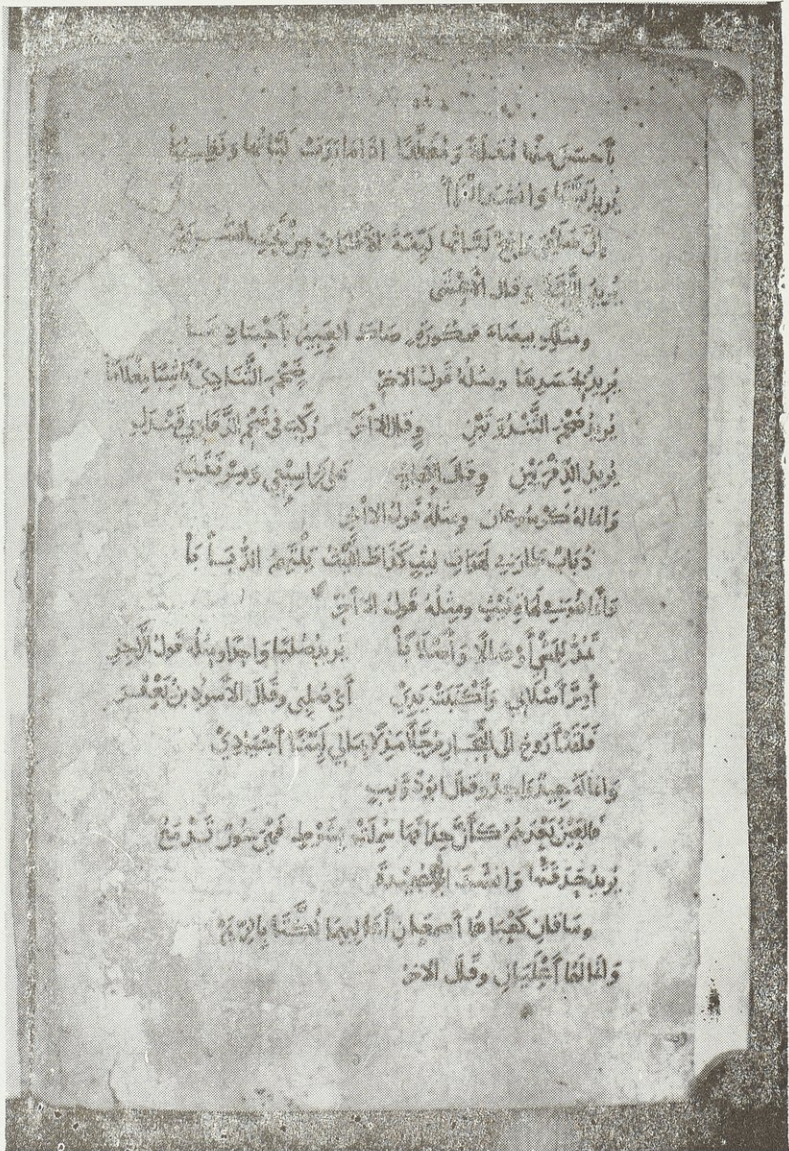 بأحسن منها مقلة ومقلدا اذا ما بدت لباتها و
يريد لبتها وانشد
إن على لباتها لبقية من تحت
يريد اللبة وقال الاعشى
ومثلك بيضاء ممكورة صاك العبير بأجسادها
يريد بجسدها ومثله قول الاخر ضخم الثنادي ناشبا مغلابا
يريد ضخم الثندوتين وقال الآخر ركبت في ضخم الذفارى قندل
يريد الذفريين وقال على كراسيعي ومرفقيه
وإنما له كرسوعان ومثله قول الاآخر
ذباب طار في لهوات ليث كذاك الليث يلتهم الذبابا
وإنما هو في لهاة ليث ومثله قول الاآخر
تمد للمشي أوصالا وأصلابا يريد صلبا واحدا ومثله قول الآخر
أي صلبي وقال الأسود بن يعفر
فلقد أروح الى التجار مرجلا مذلا بمالي لينا أجيادي
وانما له جيد واحد وقال ابو ذؤيب
فالعين بعدهم كأن حداقها سملت بشوك فهي عور تدمع
يريد حدقتها وانشد
وساقان كعباهما أصمعان أعاليهما لكتا بالديم
وانما لهما أعليان وقال الاخر